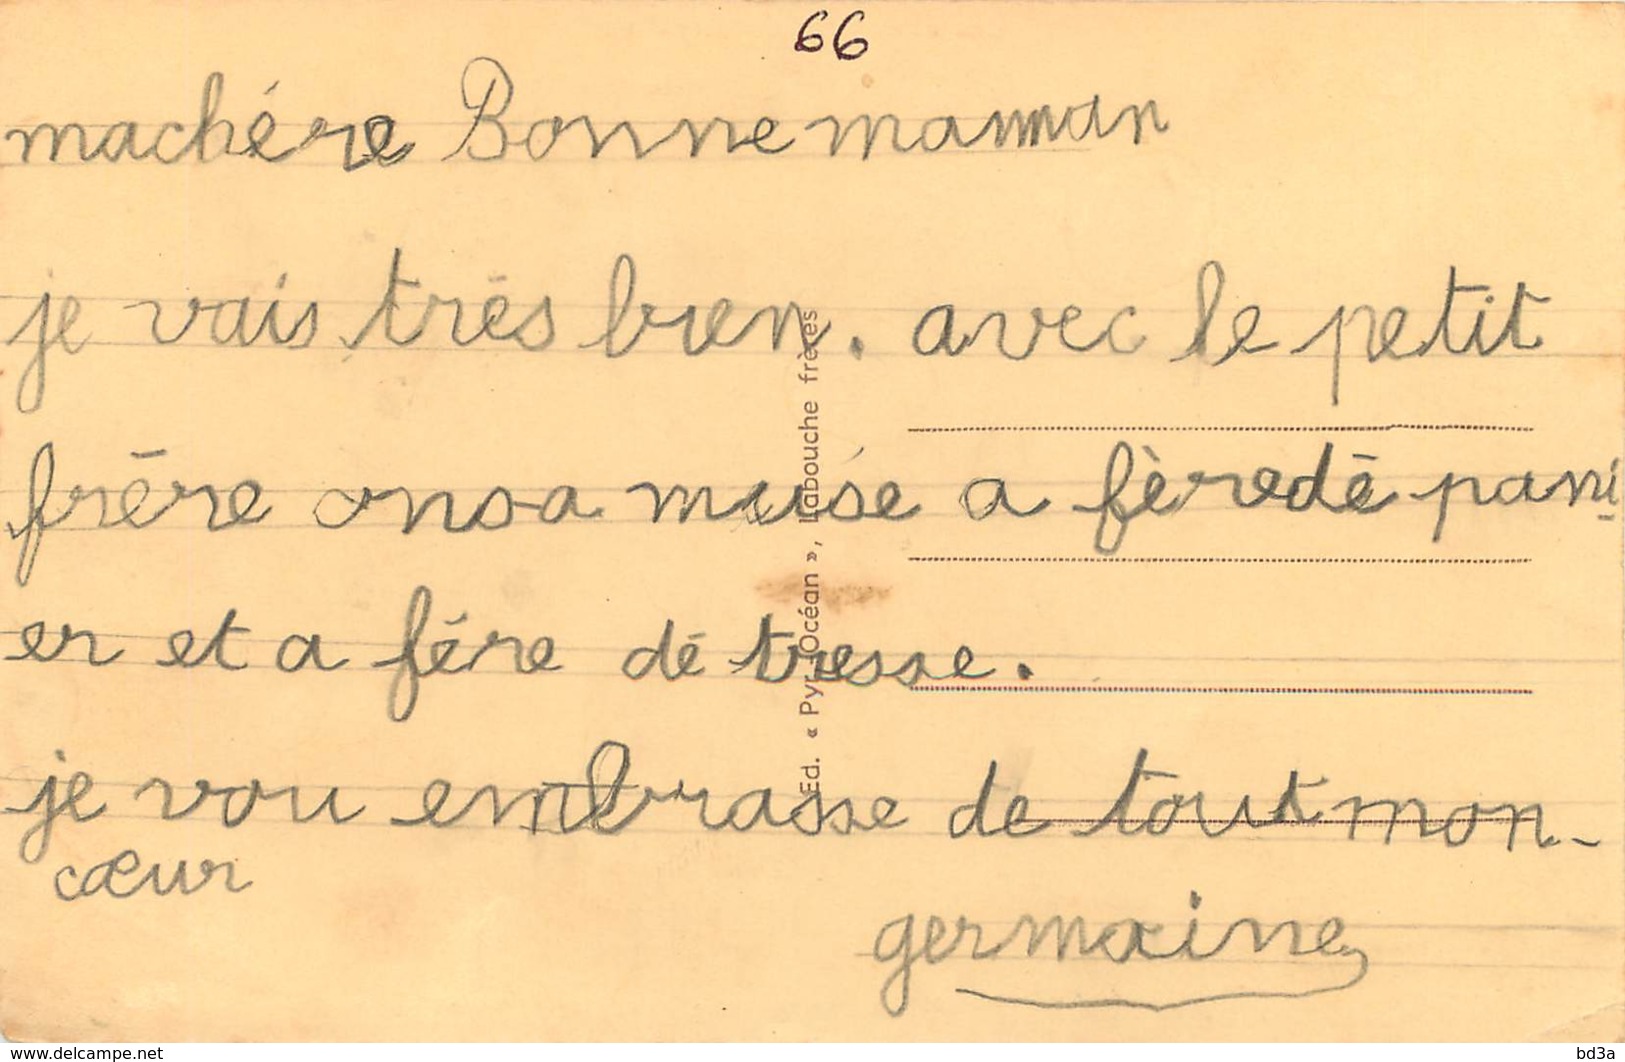 66
machére Bonne maman
je vais trés bien. avec le petit
frére onsa muse a fèredé pani
er et a fére dé tresse.
je vou embrasse de tout mon-
cœur
germaine
Ed. « Pyr.-Océan », Labouche frères
www.delcampe.net
bd3a